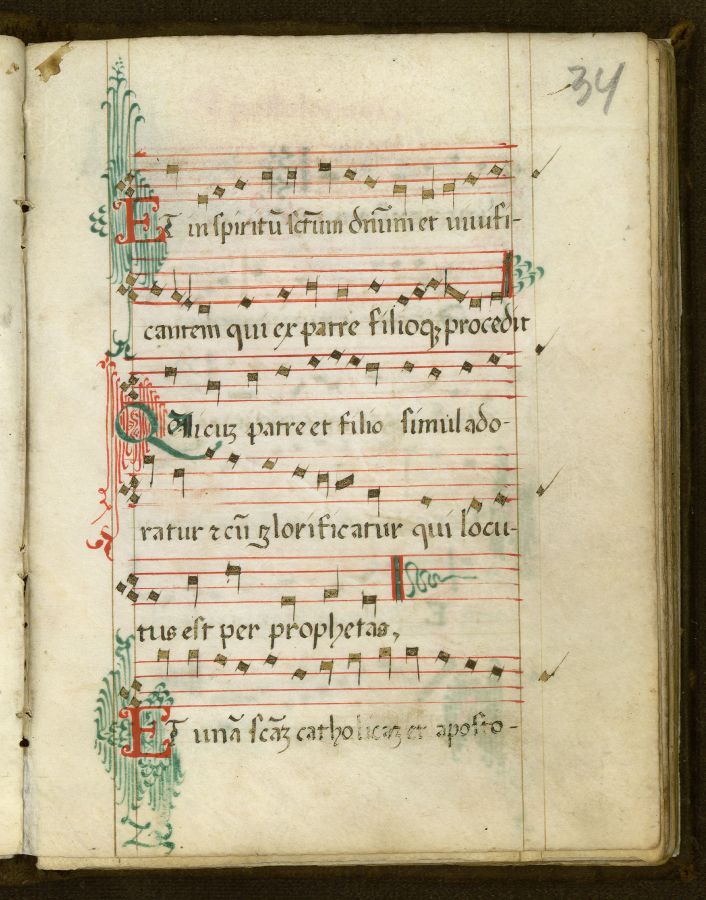 34
ET in spiritū sctūm dnūm et vivifi-
cantem qui ex patre filioqꝫ procedit
Qui cuꝫ patre et filio simul ado-
ratur ⁊ cū glorificatur qui locu-
tus est per prophetas,
ET unā scāꝫ catholicaꝫ et aposto-